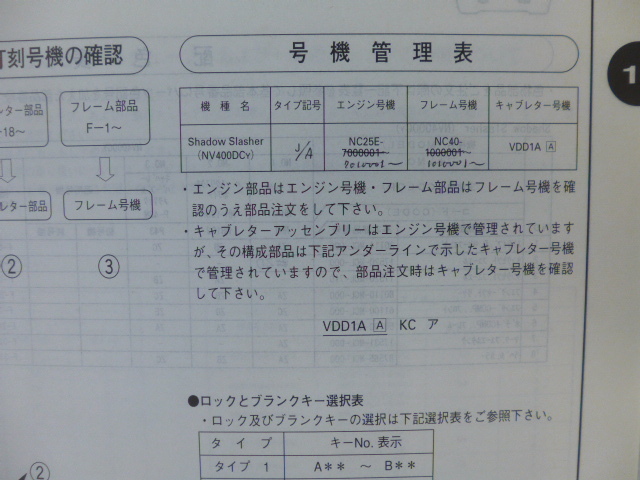 刻号機の確認
号機管理表
1
レター部品
フレーム部品
18～
F－1～
レター部品
フレーム号機
②
③
機種名 タイプ記号 エンジン号機 フレーム号機 キャブレター号機
Shadow Slasher
(NV400DCY)
J/A
NC25E-
7000001～
9010001～
NC40-
1000001～
1010001～
VDD1A A
・エンジン部品はエンジン号機・フレーム部品はフレーム号機を確
認のうえ部品注文をして下さい。
・キャブレターアッセンブリーはエンジン号機で管理されています
が、その構成部品は下記アンダーラインで示したキャブレター号機
で管理されていますので、部品注文時はキャブレター号機を確認
して下さい。
VDD1A A KC ア
●ロックとブランクキー選択表
・ロック及びブランクキーの選択は下記選択表をご参照下さい。
タイプ キーNo. 表示
タイプ 1 A＊＊ ～ B＊＊
②